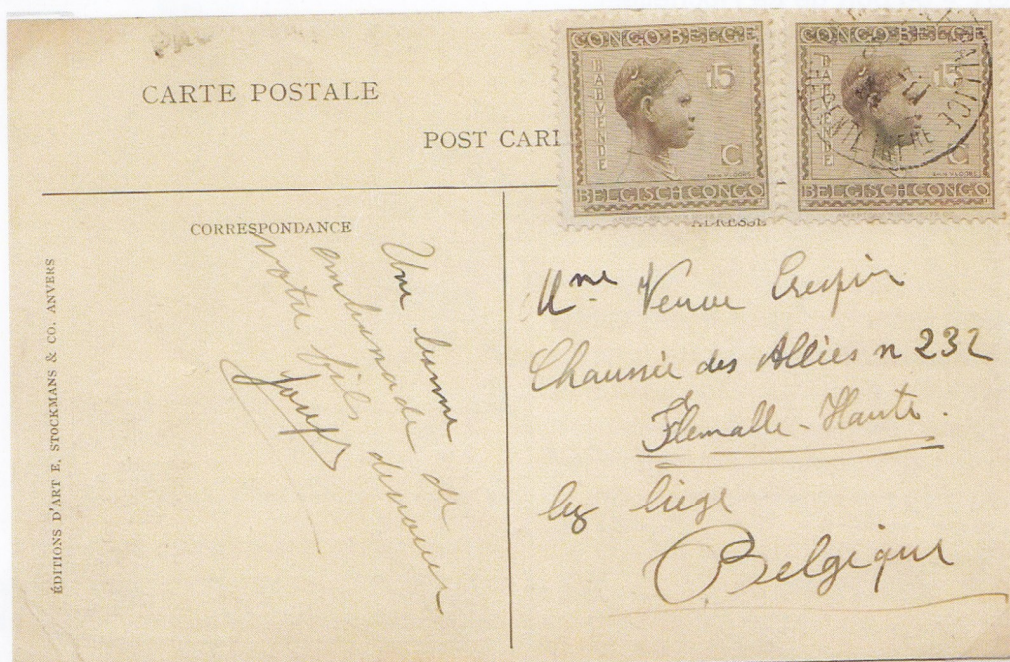 CARTE POSTALE
POST CAR
CONGO BELGE
BARUENDE
15
C
BELGISCH CONGO
CONGO BELGE
BARUENDE
15
C
BELGISCH CONGO
CORRESPONDANCE
ADRESSE
ÉDITIONS D'ART E. STOCKMANS & CO. ANVERS
Une bonne de
votre fils
Mme Veuve Crespin
Chaussée des Alliés n 232
Flemalle-Haute.
lez Liége
Belgique